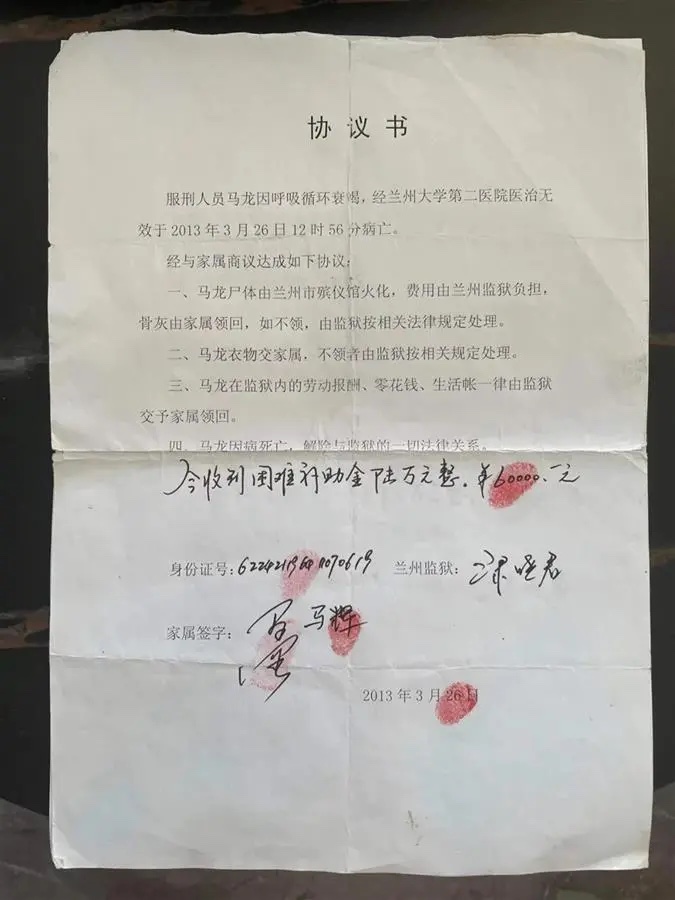 协议书
服刑人员马龙因呼吸循环衰竭，经兰州大学第二医院医治无
效于2013年3月26日12时56分病亡。
经与家属商议达成如下协议：
一、马龙尸体由兰州市殡仪馆火化，费用由兰州监狱负担，
骨灰由家属领回，如不领，由监狱按相关法律规定处理。
二、马龙衣物交家属，不领者由监狱按相关规定处理。
三、马龙在监狱内的劳动报酬、零花钱、生活帐一律由监狱
交予家属领回。
四、马龙因病死亡，解除与监狱的一切法律关系。
今收到困难补助金陆万元整。¥60000.元
身份证号： 兰州监狱：
家属签字： 马辉
2013年3月26日